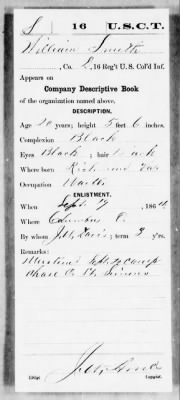 S 16 U.S.C.T.
William Smith
, Co. E, 16 Reg't U.S. Col'd Inf.
Appears on
Company Descriptive Book
of the organization named above.
DESCRIPTION.
Age 20 years; height 5 feet 6 inches.
Complexion Black
Eyes Black; hair Black
Where born Richmond Va
Occupation Waiter
ENLISTMENT.
When Sept 17, 186
Where Columbus O.
By whom; term 3 y'rs.
Remarks:
Camp
Chase O.
Copyist.